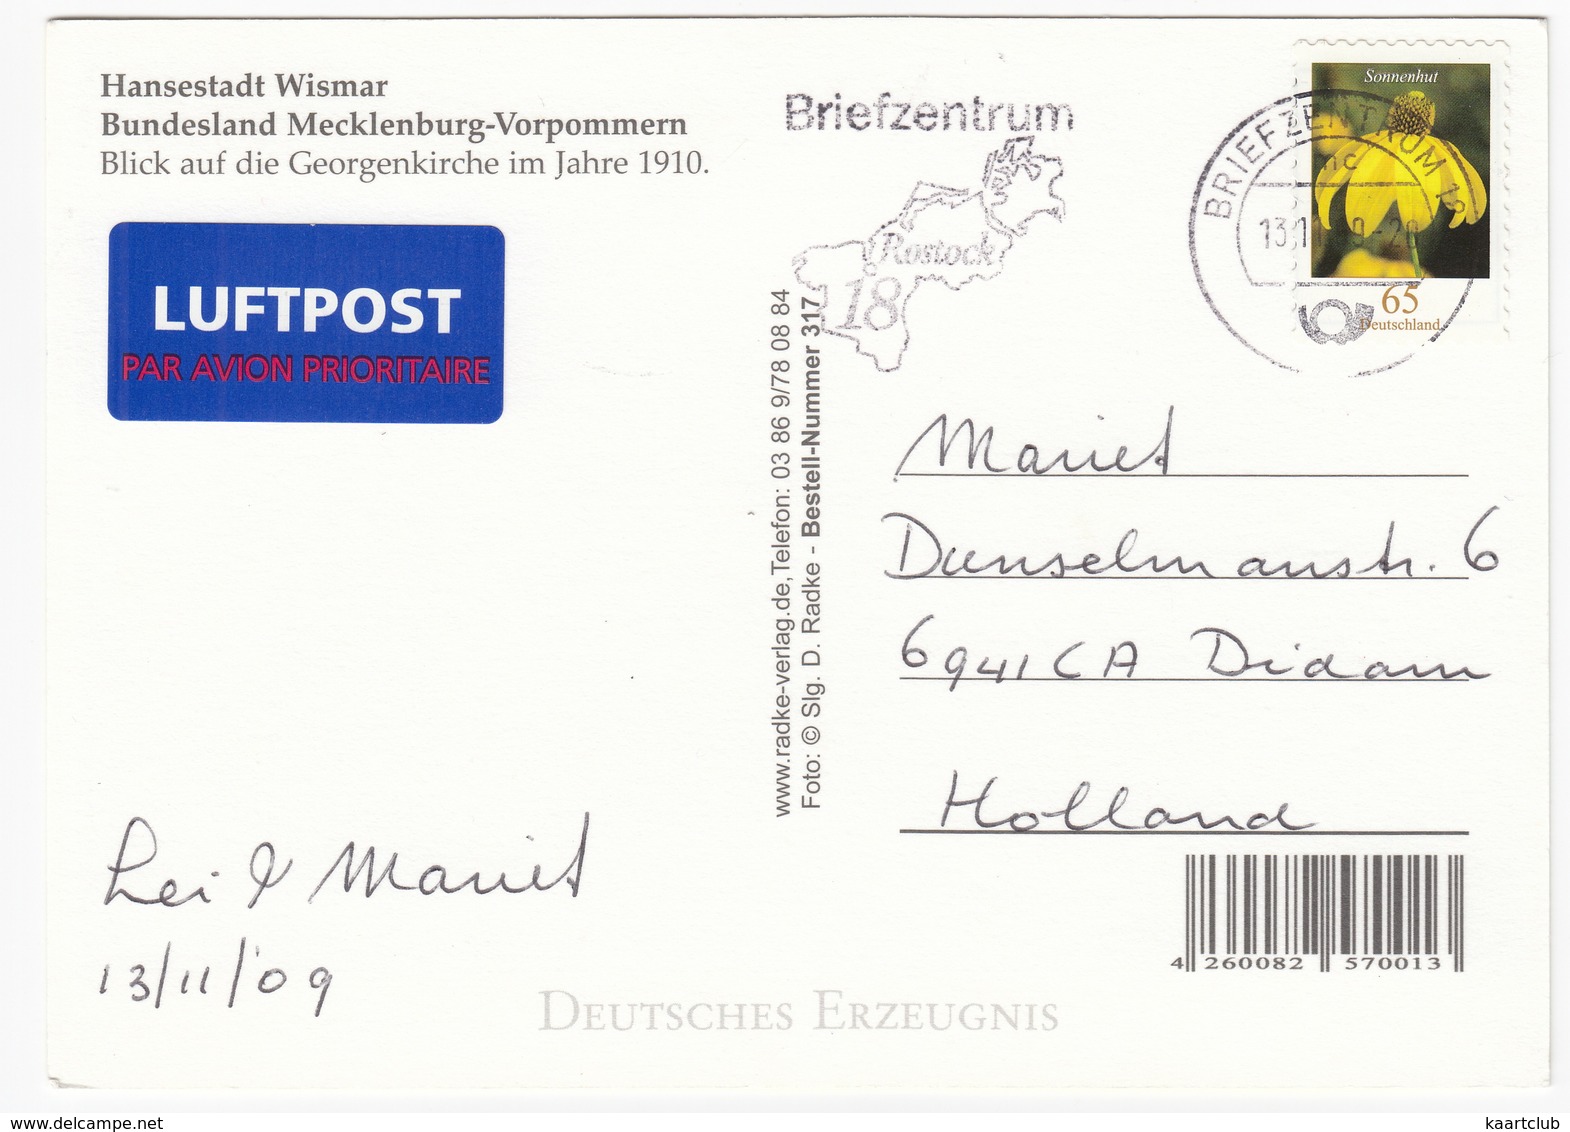 Hansestadt Wismar
Bundesland Mecklenburg-Vorpommern
Blick auf die Georgenkirche im Jahre 1910.
LUFTPOST
PAR AVION PRIORITAIRE
Briefzentrum
Rostock
18
BRIEFZENTRUM 18
mc
13.11
Sonnenhut
65
Deutschland
www.radke-verlag.de,Telefon: 03 86 9/78 08 84
Foto: © Slg. D. Radke - Bestell-Nummer 317
Mariet
Dunselmanstr. 6
6941 CA Didam
Holland
Lei & Mariet
13/11/'09
4 260082 570013
DEUTSCHES ERZEUGNIS
www.delcampe.net
kaartclub